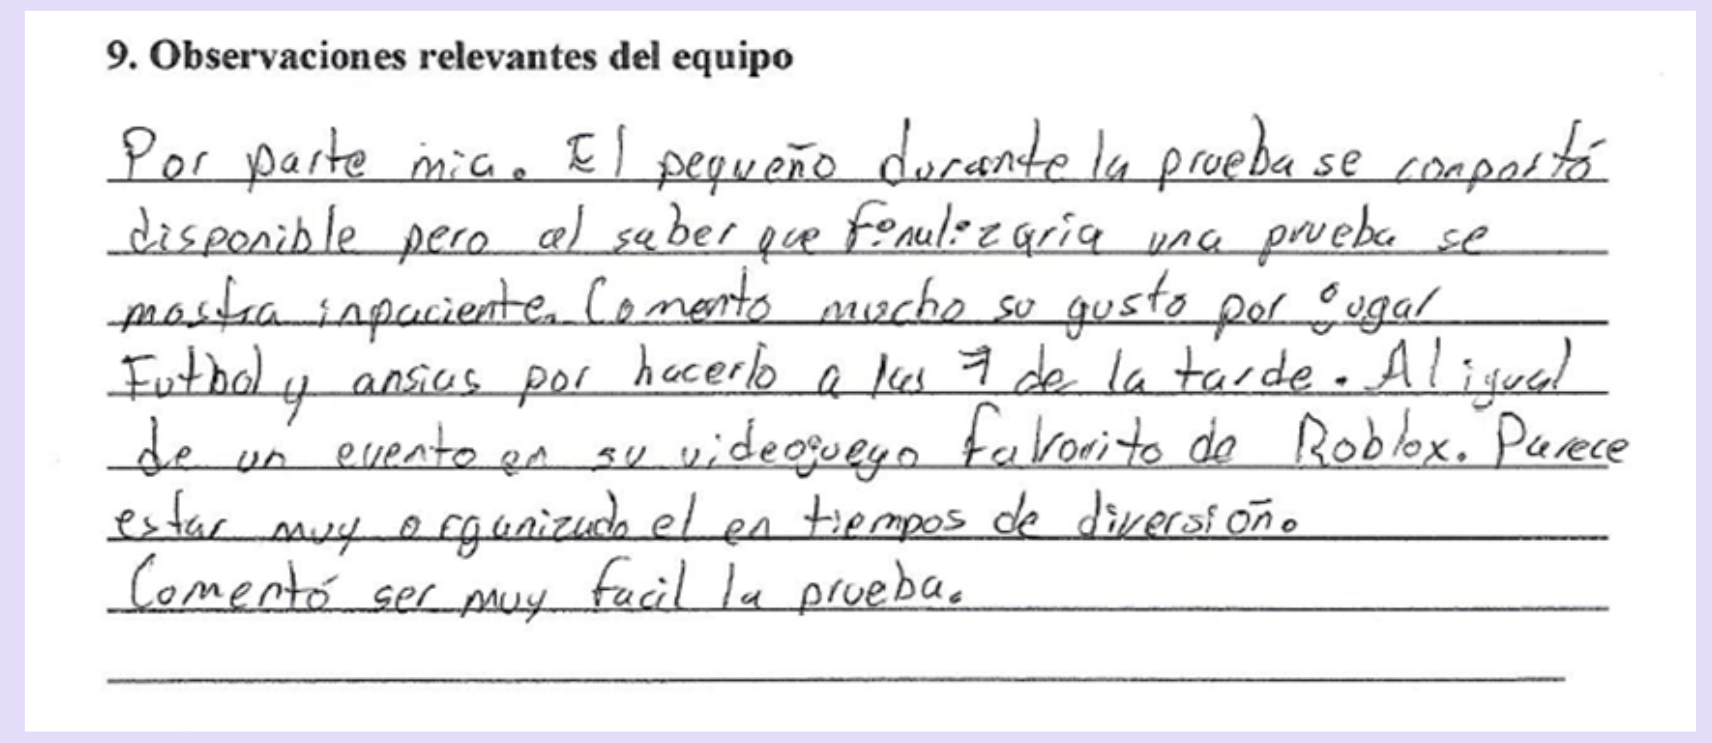 9. Observaciones relevantes del equipo
Por parte mia. El pequeño durante la prueba se comportó
disponible pero al saber que finalizaria una prueba se
mostra inpaciente. Comento mucho su gusto por jugar
Futbol y ansias por hacerlo a las 7 de la tarde. Al igual
de un evento en su videojuego favorito de Roblox. Parece
estar muy organizado el en tiempos de diversión.
Comentó ser muy facil la prueba.